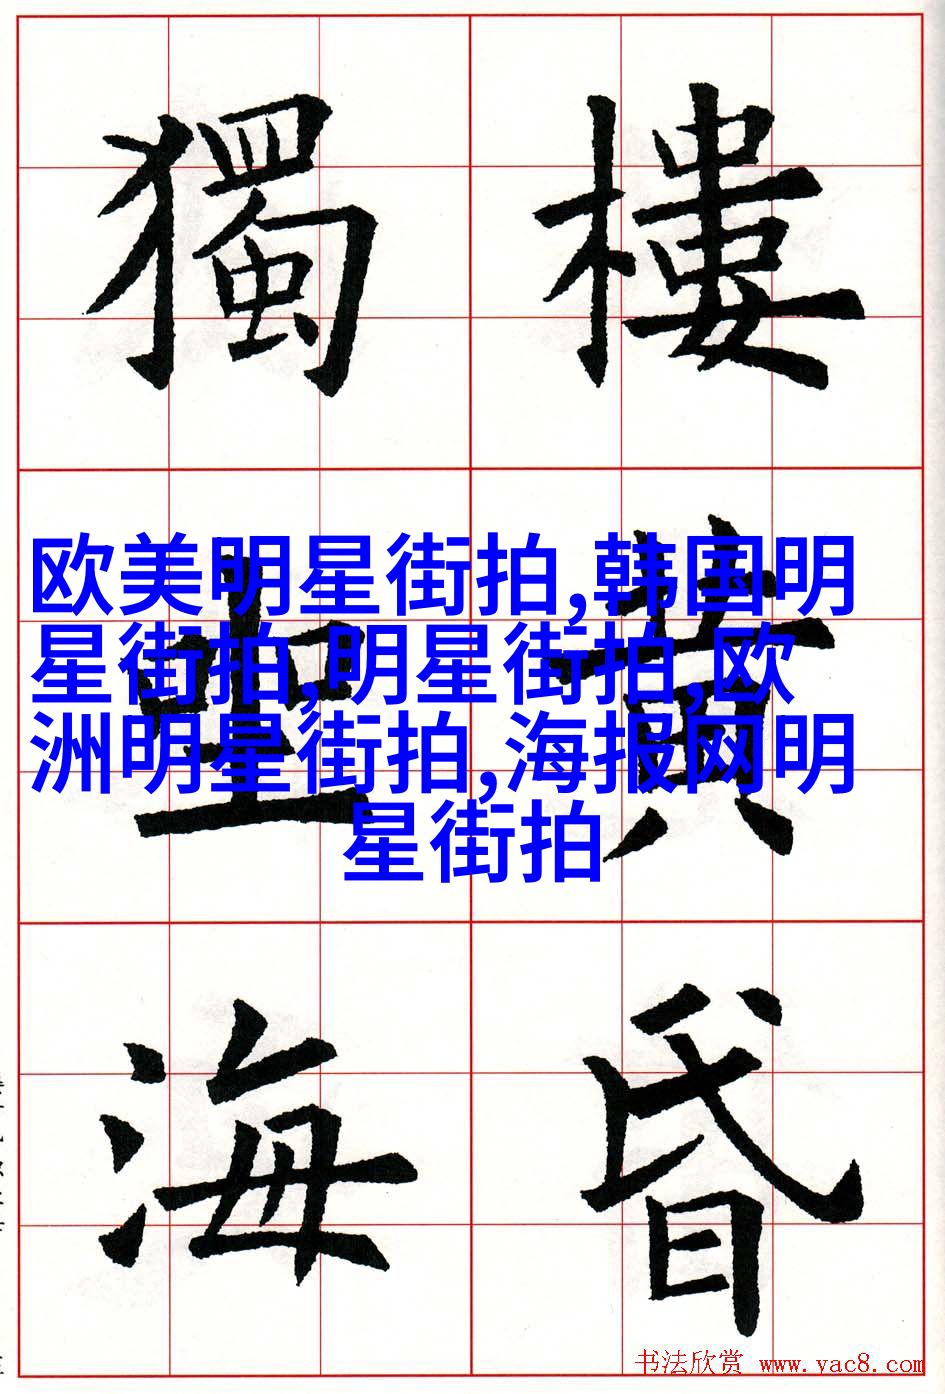 樓黄昏
獨海
欧美明星街拍,韩国明
星街拍,明星街拍,欧
洲明星街拍,海报网明
星街拍
书法欣赏 www.yac8.com